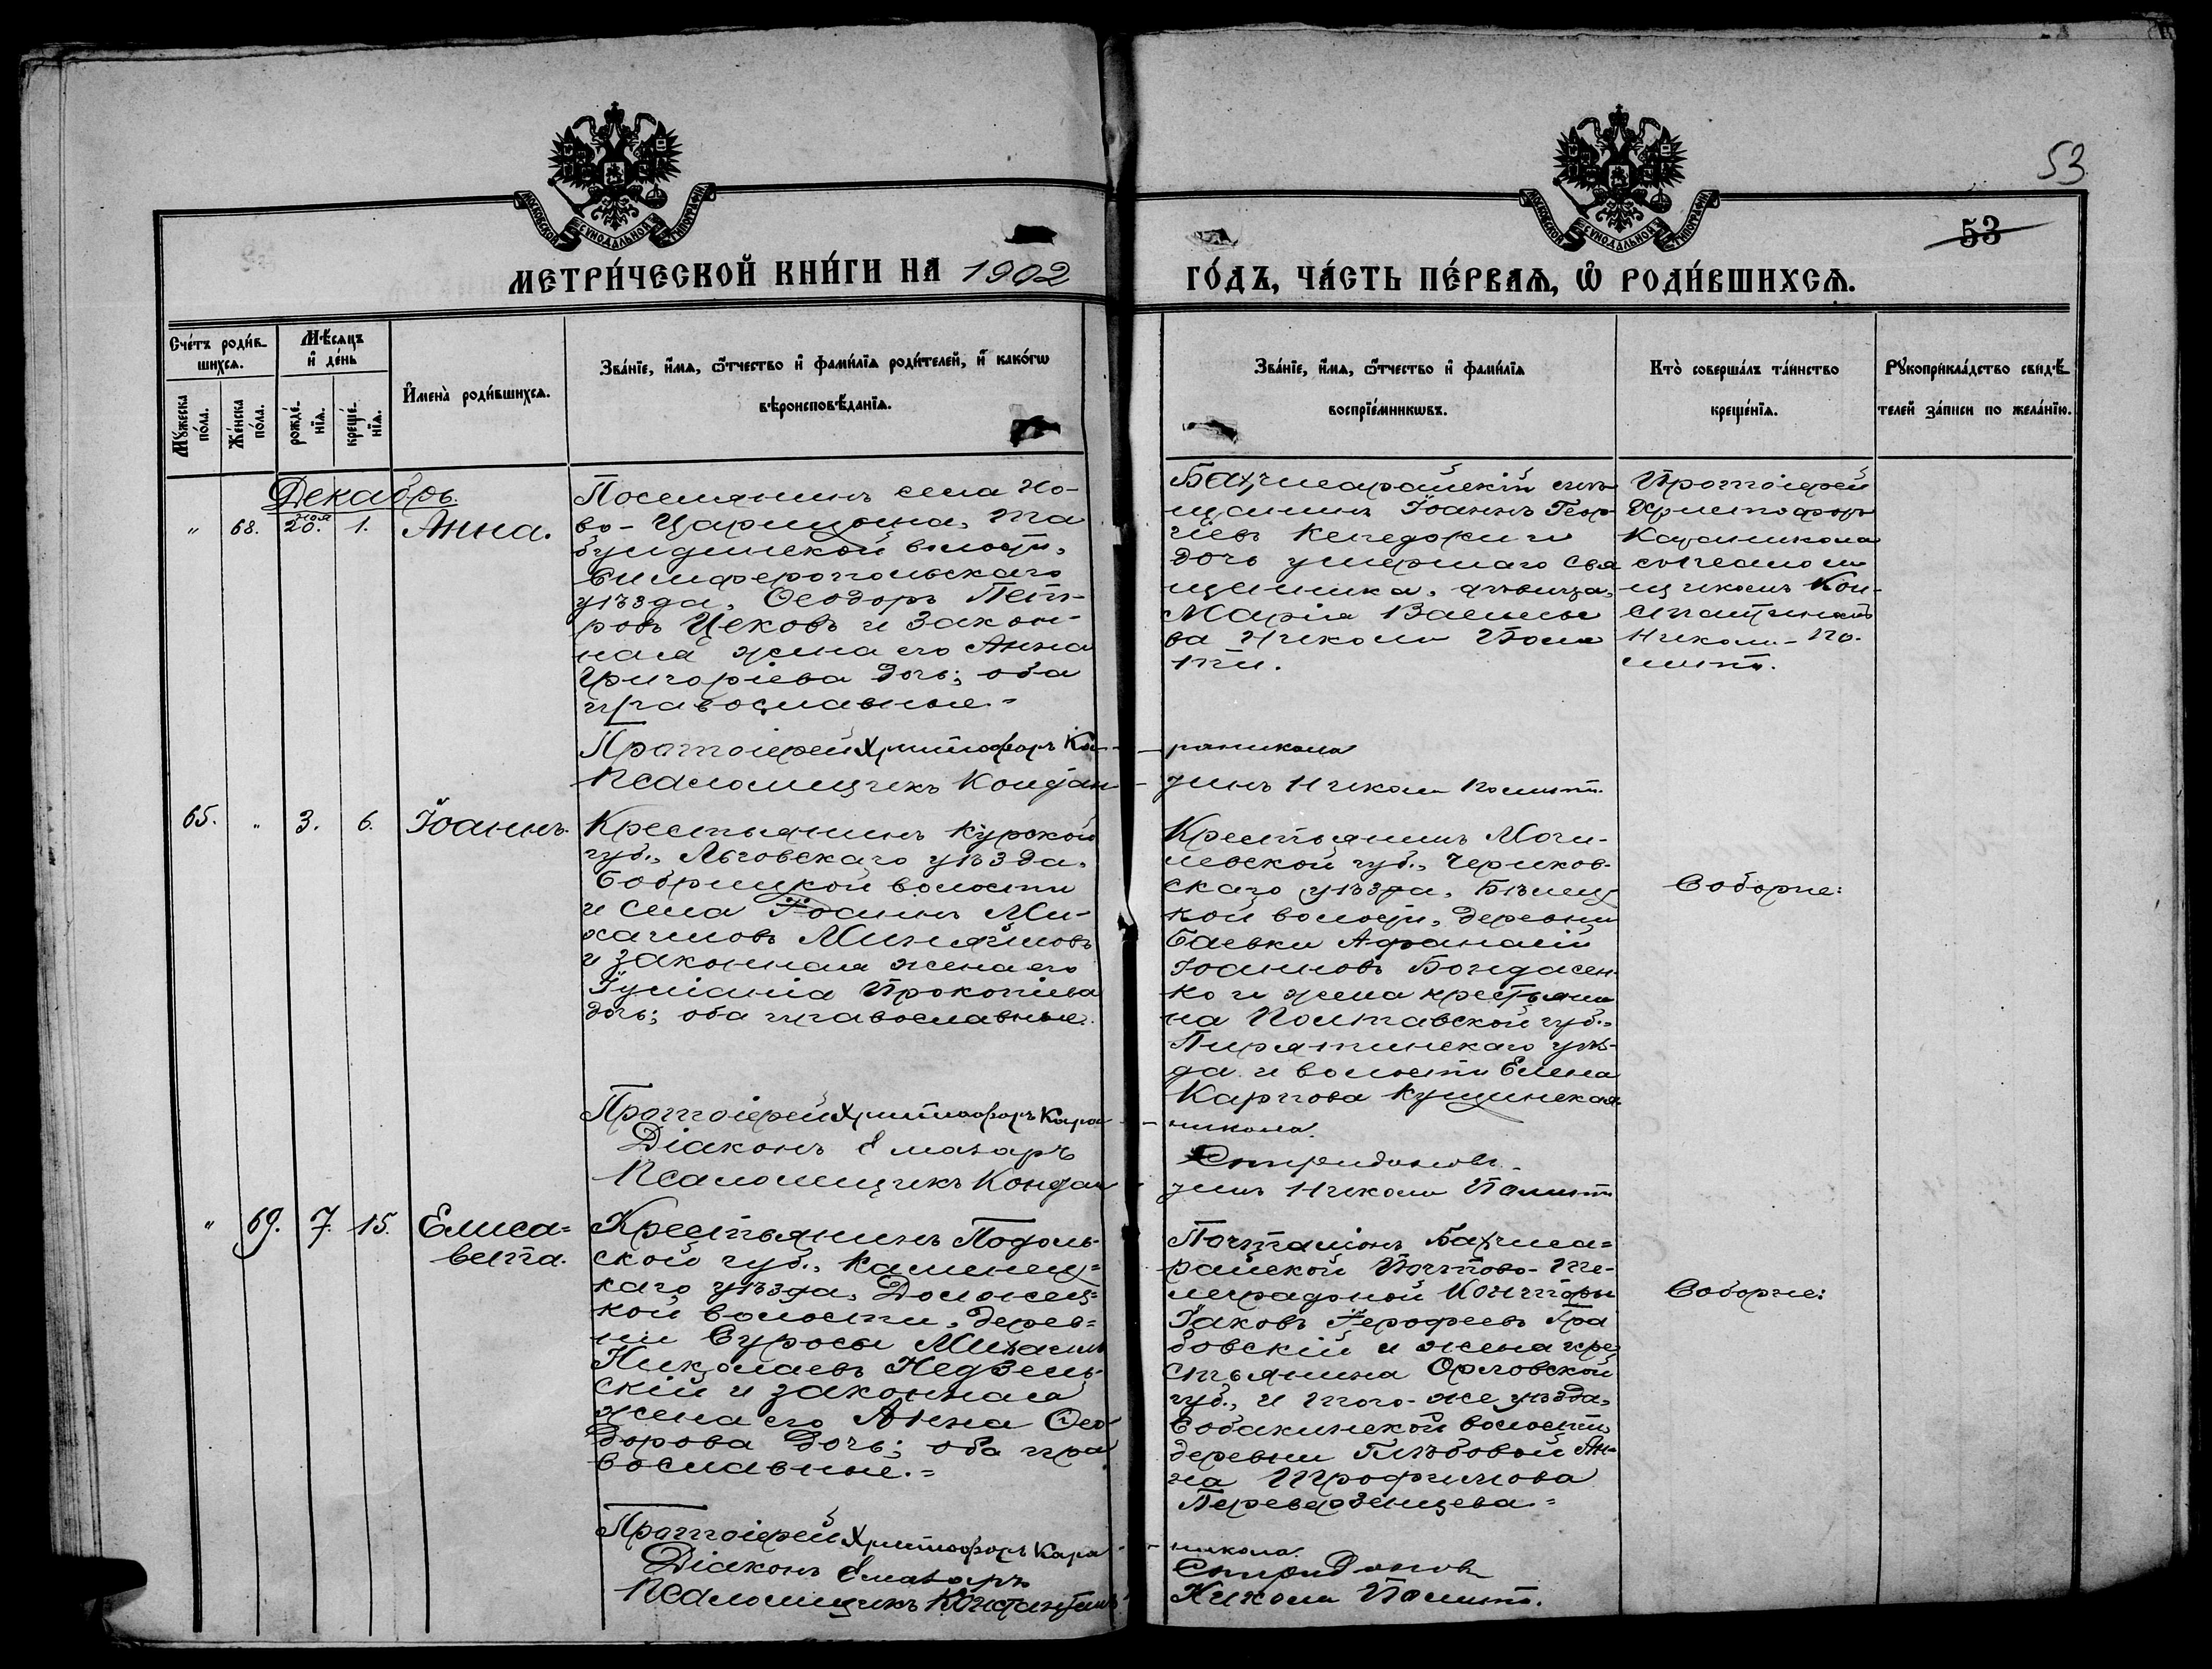 53
53
МОСКОВСКОЙ СУНОДАЛЬНОЙ ТИПОГРАФІИ
МОСКОВСКОЙ СУНОДАЛЬНОЙ ТИПОГРАФІИ
МЕТРИ́ЧЕСКОЙ КНИ́ГИ НА 1902
ГО́ДЪ, ЧА́СТЬ ПЕ́РВАѦ, Ѡ҆ РОДИ́ВШИХСѦ.
Сче́тъ роди́в-
шихсѧ.
Мꙋ́жеска по́ла.
Же́нска по́ла.
Мѣ́сѧцъ
и҆ де́нь
рожде́-
нїѧ.
креще́-
нїѧ.
И҆мена̀ роди́вшихсѧ.
Зва́нїе, и҆́мѧ, ѻ҆́тчество и҆ фами́лїѧ роди́телей, и҆ како́гѡ
вѣроисповѣ́данїѧ.
Зва́нїе, и҆́мѧ, ѻ҆́тчество и҆ фами́лїѧ
воспрїе́мникѡвъ.
Кто̀ соверша́лъ та́инство
креще́нїѧ.
Рꙋкоприкла́дство свидѣ́-
телей за́писи по жела́нїю.
Декабрь.
" 68. ноя 20. 1. Анна.
Поселянинъ села Но-
во-Царицына, Та
булдинской волости,
Симферопольскаго
уѣзда, Ѳеодоръ Пет-
ровъ Цековъ и закон-
ная жена его Анна
Григоріева дочь; оба
православные.=
Бахчисарайскій мѣ-
щанинъ Іоаннъ Геор
гіевъ и
дочь умершаго свя
щенника, дѣвица,
Марія Василье
ва Николи Поли
ти.
Протоіерей
Христофоръ
Караникола
съ псаломщ
щикомъ Кон-
стантиномъ
Николи-По-
лити.
Протоіерей Христофоръ Ка- -раникола
Псаломщикъ Констан- тинъ Николи Полити.
65. " 3. 6. Іоаннъ.
Крестьянинъ Курской
губ., Льговскаго уѣзда,
Бобрицкой волости
и села Іоаннъ Ми-
хаиловъ Миняйловъ
и законная жена его
Іуліанія Прокопіева
дочь; оба православные.
Крестьянинъ Моги-
левской губ., Чериков-
скаго уѣзда, Бѣлиц
кой волости, деревни
Баевки Афанасій
Іоанновъ Богдасен-
ко и жена крестьяни
на Полтавской губ.,
Пирятинскаго уѣз-
да и волости Елена
Карпова Кущинская.
Соборне:
Протоіерей Христофоръ Кара- -никола.
Діаконъ Елеазаръ Спиридоновъ.
Псаломщикъ Констан- тинъ Николи Полити
" 69. 7. 15. Елиса=
вета.
Крестьянинъ Подоль-
ской губ., Каменец=
каго уѣзда, Должец=
кой волости, дерев=
ни Супросы Михаилъ
Николаевъ Недзель-
скій и законная
жена его Анна Ѳео
дорова дочь; оба пра
вославные.=
Почталіонъ Бахчиса=
райской Почтово-Те-
леграфной Конторы
Іаковъ Іерофеевъ Гра
бовскій и жена кре
стьянина Орловской
губ., и того-же уѣзда,
Собакинской волости,
деревни Глѣбовой Ан-
на Трофимова
Переверзенцева.=
Соборне:
Протоіерей Христофоръ Кара- -никола.
Діаконъ Елеазаръ Спиридоновъ
Псаломщикъ Константинъ Николи Полити.